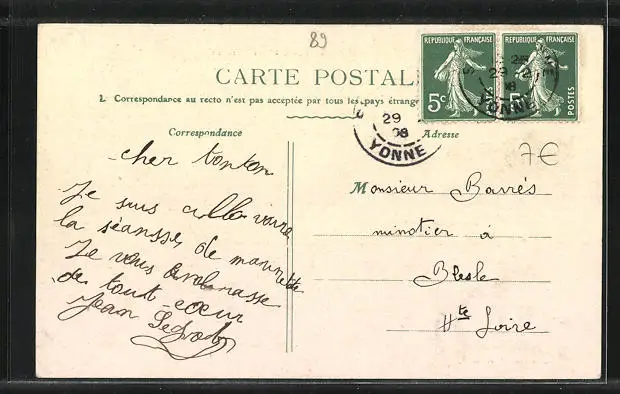 89
REPUBLIQUE FRANÇAISE
5c
REPUBLIQUE FRANÇAISE
5c
POSTES
CARTE POSTALE
Correspondance au recto n'est pas acceptée par tous les pays étrange
29
08
YONNE
29
08
YONNE
Correspondance
Adresse
7€
cher tonton
Je suis allé voire
la séansse de
Je vous embrasse
de tout cœur
Jean
Monsieur Barrés
minotier à
Blesle
Hte Loire